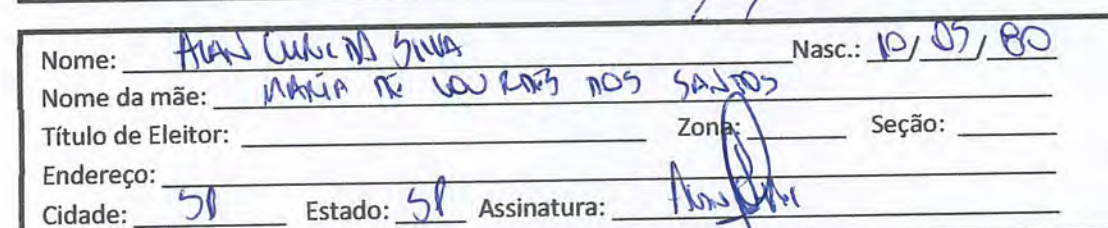 Nome: ALAN DA SILVA Nasc.: 10/05/80
Nome da mãe: MARIA DE LOURDES DOS SANTOS
Título de Eleitor: Zona: Seção:
Endereço:
Cidade: SP Estado: SP Assinatura: Alan